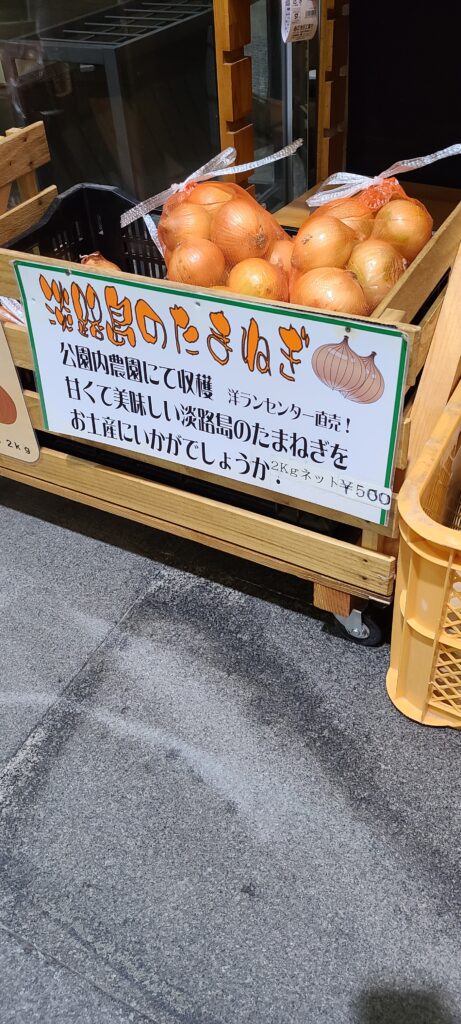 淡路島のたまねぎ
公園内農園にて収穫 洋ランセンター直売!
甘くて美味しい淡路島のたまねぎを
お土産にいかがでしょうか.
2Kgネット ¥500
2kg